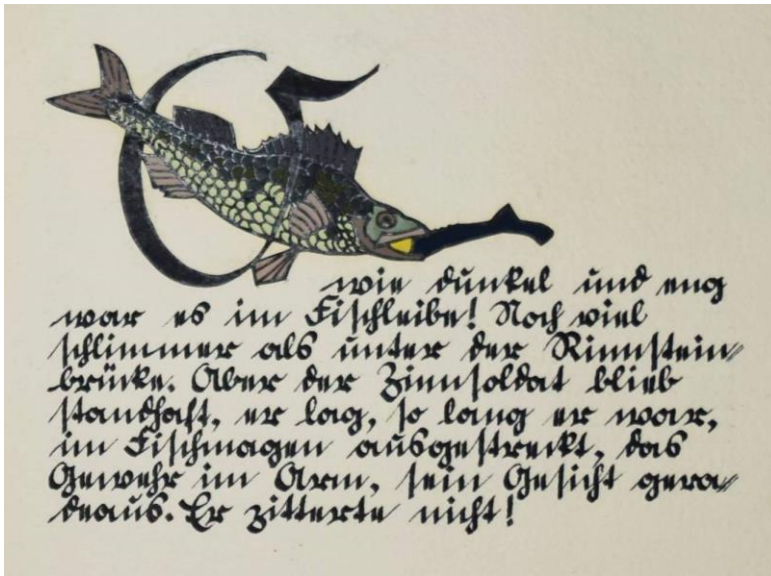 O
wie dunkel und eng
war es im Fischleibe! Noch viel
schlimmer als unter der Rinnstein-
brücke. Aber der Zinnsoldat blieb
standhaft, er lag, so lang er war,
im Fischmagen ausgestreckt, das
Gewehr im Arm, sein Gesicht gera-
deaus. Er zitterte nicht!